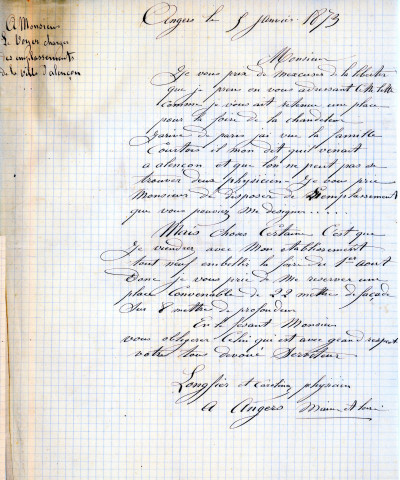 A Monsieur
Le Voyer charger
des emplassements
de la ville d'alençon
Angers le 5 Janvier 1873
Monsieur
Je vous prie de mexcuser de la liberter
que je prens en vous adressant cette lettre
comme je vous ait retenue une place
pour la foire de la chandeleur
J'arrive de paris jai vue la famille
Courtois il mon dit quil venait
a alençon et que lon ne peut pas se
trouver deux physicien Je vous prie
Monsieur de disposer de Lemplassement
que vous pouvez me designer.....
Mais chose Certaine C'est que
Je viendrez avec Mon etablissement
tout neuf embellir la foire de 1er aout
Donc je vous prie de Me reserver une
place Convenable de 22 mettre de façade
Sur 8 mettre de profondeur
En le fesant Monsieur
vous obligerez Celui qui est avec grand respect
votre tout devoué Serviteur
physicien
A Angers